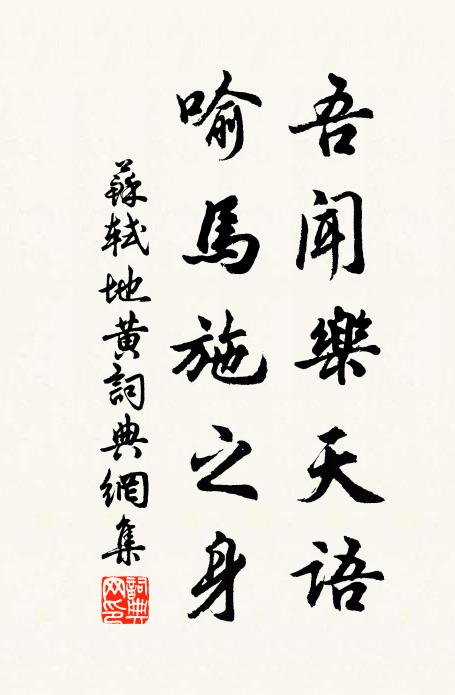 吾聞樂天語
喻馬施之身
蘇軾地黃詞典網集
詞典網印